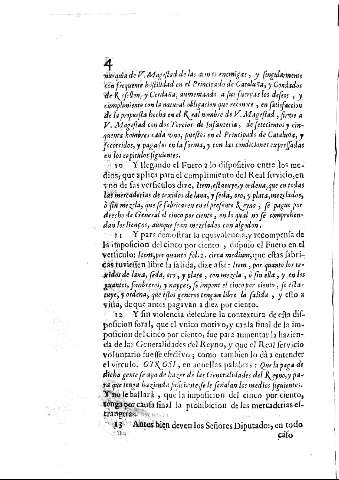 4
narquia de V. Magestad de las armas enemigas, y singularmente
con frequente hostilidad en el Principado de Cataluña, y Condados
de Rosellon, y Cerdaña, aumentando a sus fuerças los deseos, y
cumplimiento con la natural obligacion que reconoce, en satisfacion
de la propuesta hecha en el Real nombre de V. Magestad, sirve a
V. Magestad con dos Tercios de Infanteria, de setecientos y cin-
quenta hombres cada vno, puestos en el Principado de Cataluña, y
socorridos, y pagados en la forma, y con las condiciones expressadas
en los capitulos siguientes.
10 Y llegando el Fuero a lo dispositivo entre los me-
dios, que aplica para el cumplimiento del Real servicio, en
vno de sus versiculos dize, Item, estatuye, y ordena, que en todas
las mercadurias de texidos de lana, y seda, oro, y plata, mezclados,
ò sin mezcla, que se fabricaren en el presente Reyno, se pague por
derecho de General el cinco por ciento, en lo qual no se comprehen-
dan los lienços, aunque sean mezclados con algodon.
11 Y para demostrar la equivalencia, y recompensa de
la imposicion del cinco por ciento, dispuso el Fuero en el
versiculo: Item, por quanto fol. 2. circa medium, que estas fabri-
cas tuviessen libre la salida, dize assi: Item, por quanto los te-
xidos de lana, seda, oro, y plata, con mezcla, ò sin ella, y en los
guantes, sombreros, y naypes, se impone el cinco por ciento, se esta-
tuye, y ordena, que essos generos tengan libre la salida, y esto a
vista, de que antes pagavan a diez por ciento.
12 Y sin violencia descubre la contextura de esta dis-
posicion foral, que el vnico motivo, y causa final de la im-
posicion del cinco por ciento, fue para aumentar la hazien-
da de las Generalidades del Reyno, y que el Real servicio
voluntario fuesse efectivo; como tambien lo dà a entender
el versiculo. OTROSI, en aquellas palabras: Que la paga de
dicha gente se aya de hazer de las Generalidades del Reyno, y pa-
ra que tenga hazienda suficiente se le señalan los medios siguientes.
Y no se hallarà, que la imposicion del cinco por ciento,
tenga por causa final la prohibicion de las mercaderias es-
trangeras.
13 Antes bien deven los Señores Diputados, en todo
caso